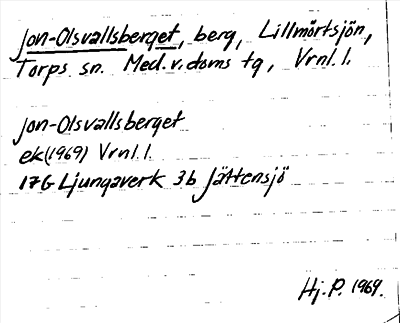 Jon-Olsvallsberget, berg, Lillmörtsjön,
Torps sn. Med.v.doms tg, Vrnl.l.
Jon-Olsvallsberget
ek(1969) Vrnl.l.
17G Ljungaverk 3b Jättensjö
Hj.P. 1969.